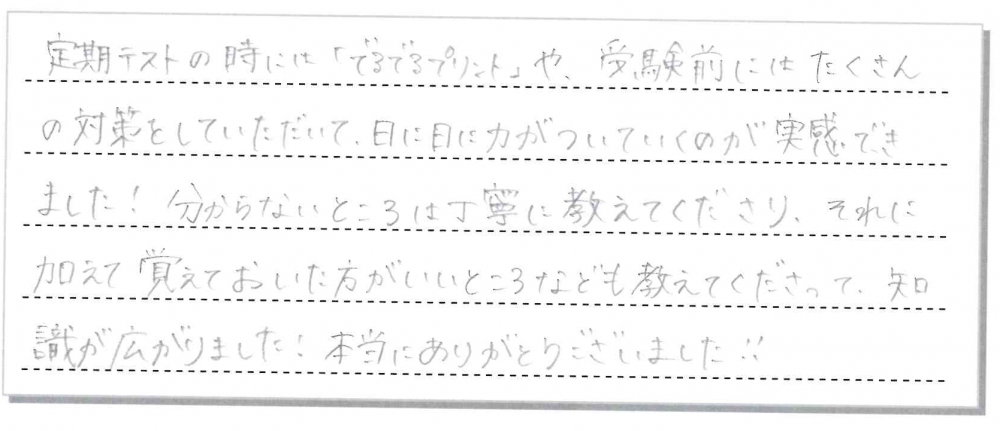 定期テストの時には「でるでるプリント」や、受験前にはたくさん
の対策をしていただいて、日に日に力がついていくのが実感でき
ました！分からないところは丁寧に教えてくださり、それに
加えて覚えておいた方がいいところなども教えてくださって、知
識が広がりました！本当にありがとうございました!!